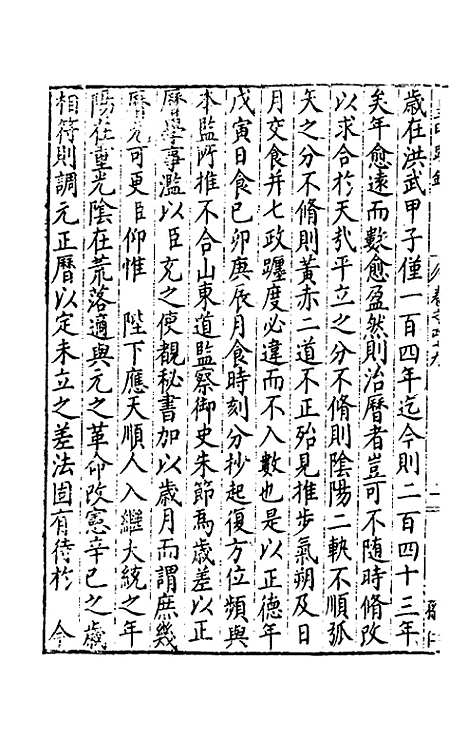 歲在洪武甲子僅一百四年迄今則二百四十三年
矣年愈遠而數愈盈然則治曆者豈可不隨時脩改
以求合於天哉平立之分不脩則陰陽二軼不順弧
矢之分不脩則黃赤二道不正殆見推步氣朔及日
月交食并七政躔度必違而不入數也是以正德年
戊寅日食已卯庚辰月食時刻分抄起復方位頻與
本監所推不合山東道監察御史朱節爲歲差以正
曆學事濫以臣充之使觀秘書加以歲月而謂庶幾
曆元可更臣仰惟　陛下應天順人入繼大統之年
陽在重光陰在荒落適與元之革命改憲辛已之歲
相符則調元正曆以定未立之差法固有待於　今